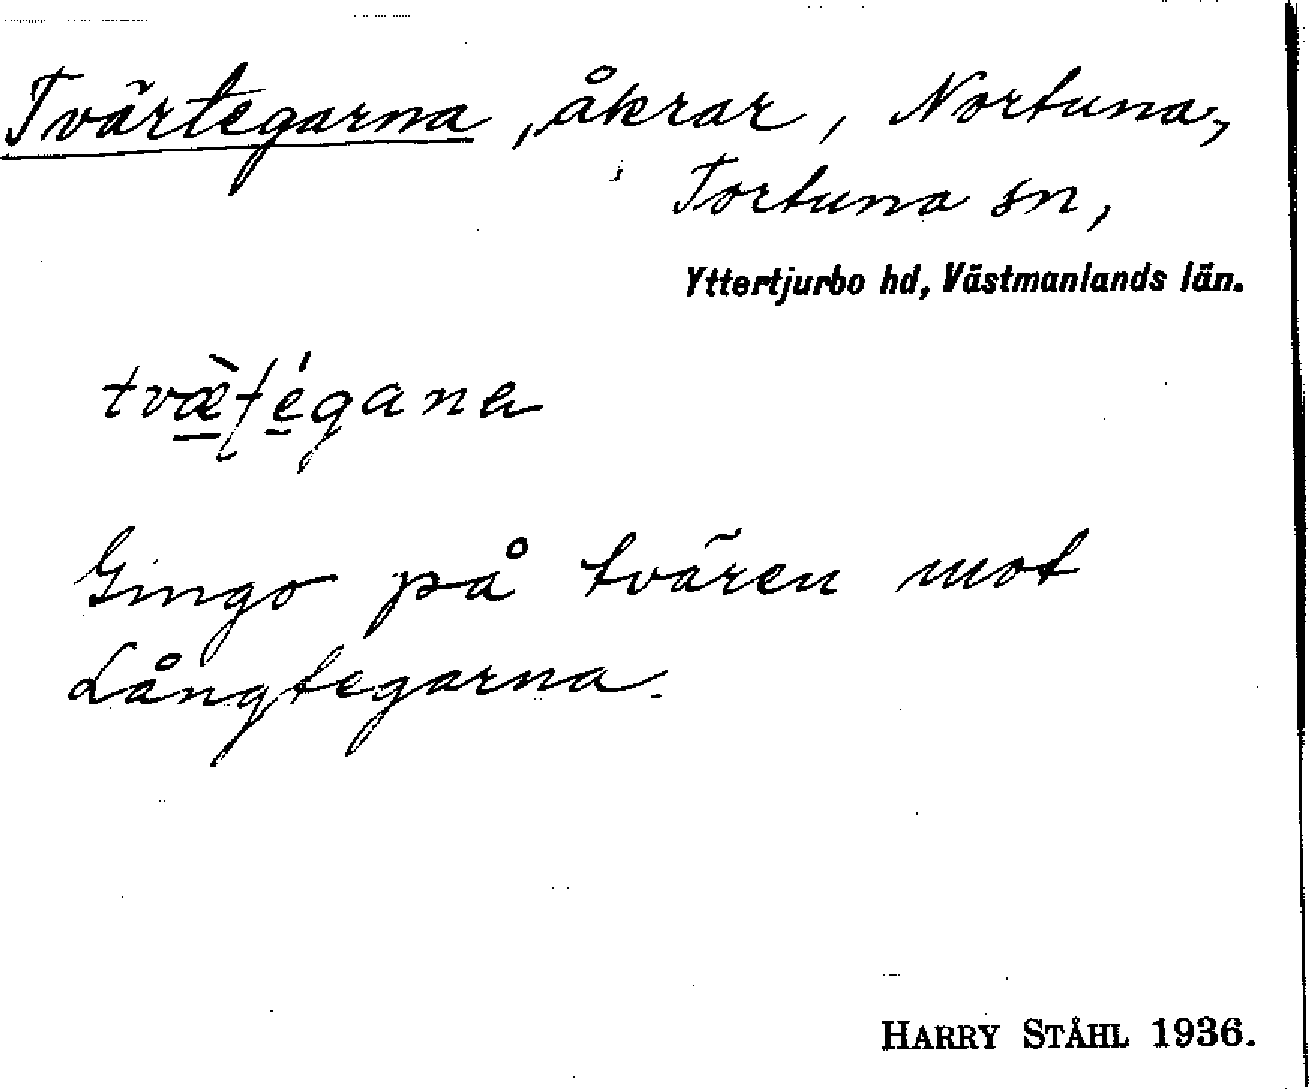 Tvärtegarna, åkrar, Nortuna,
Tortuna sn,
Yttertjurbo hd, Västmanlands län.
tvæ̀ƭégana
Gingo på tvären mot
Långtegarna.
HARRY STÅHL 1936.